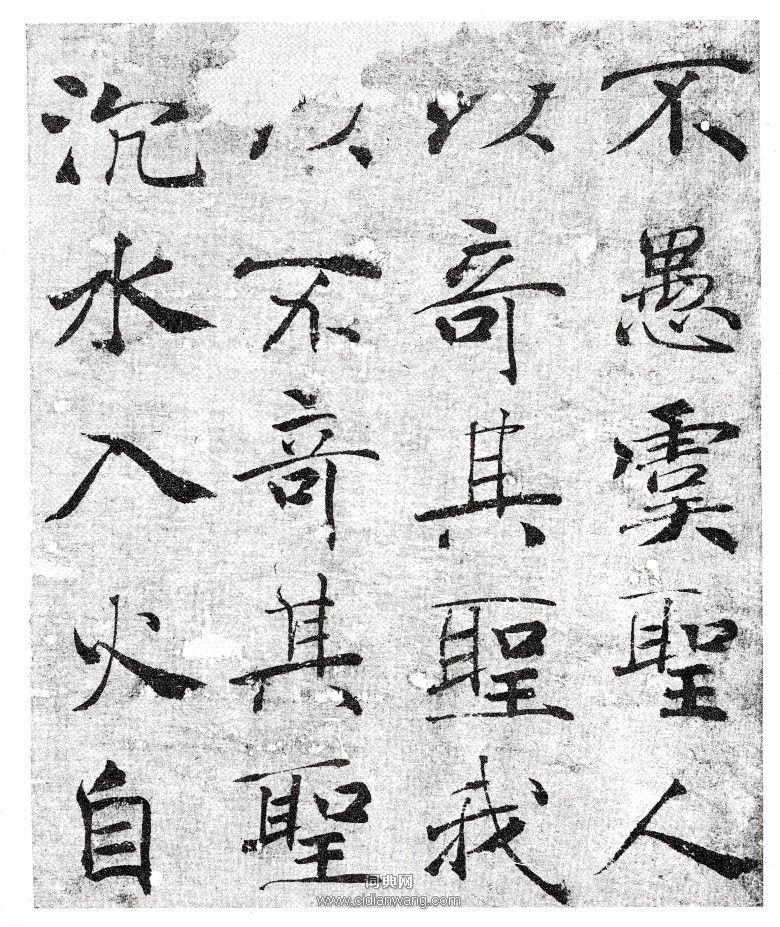 不愚虞聖人
以奇其聖我
以不奇其聖
沉水入火自
词典网
www.cidianwang.com